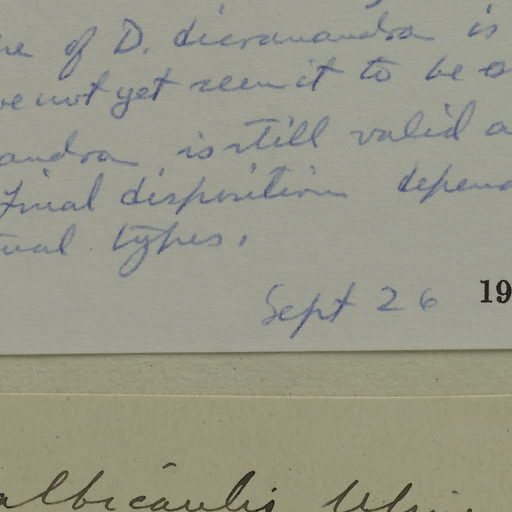 of D. dicranandra is
not yet seen it to be
andra is still valid a
Final disposition depend
types.
Sept 26 19
albicaulis